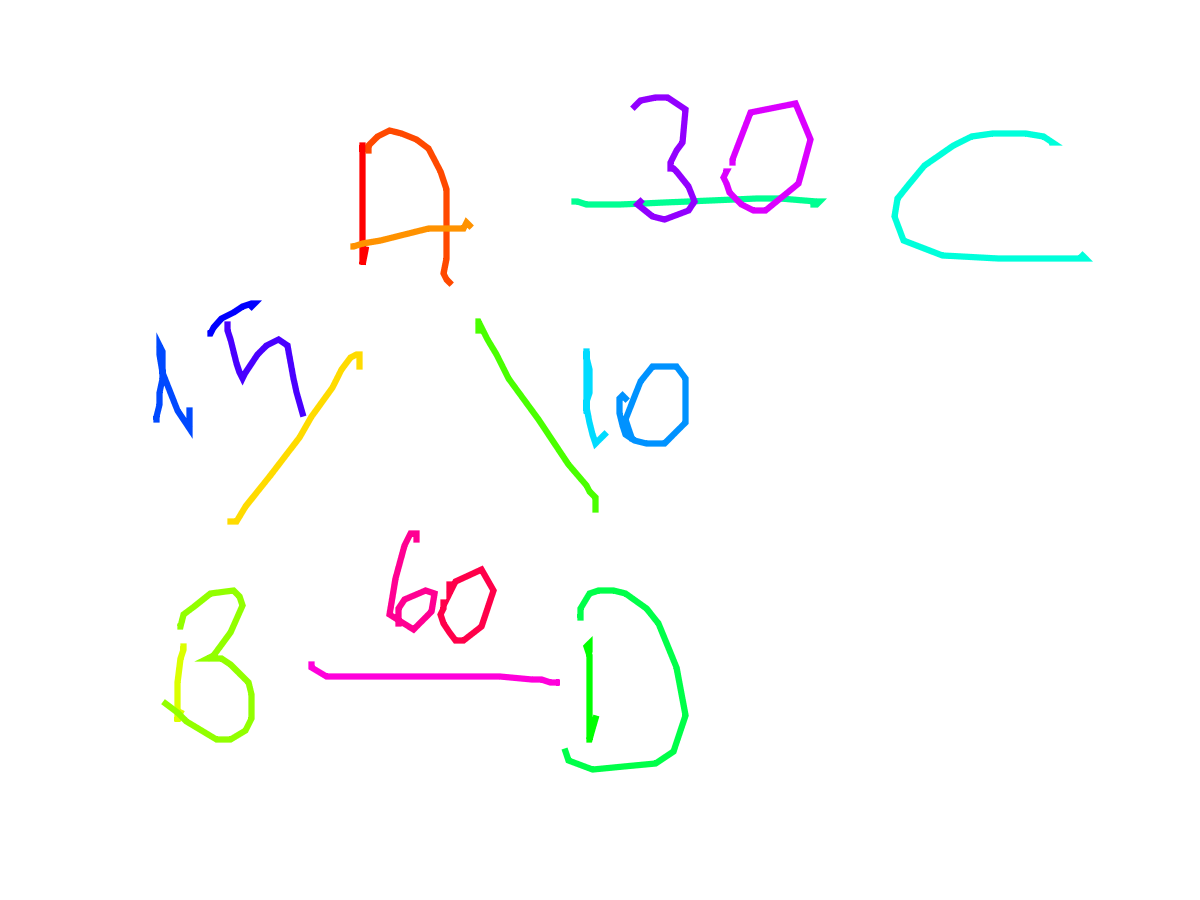 A 30 C
10
60
B D